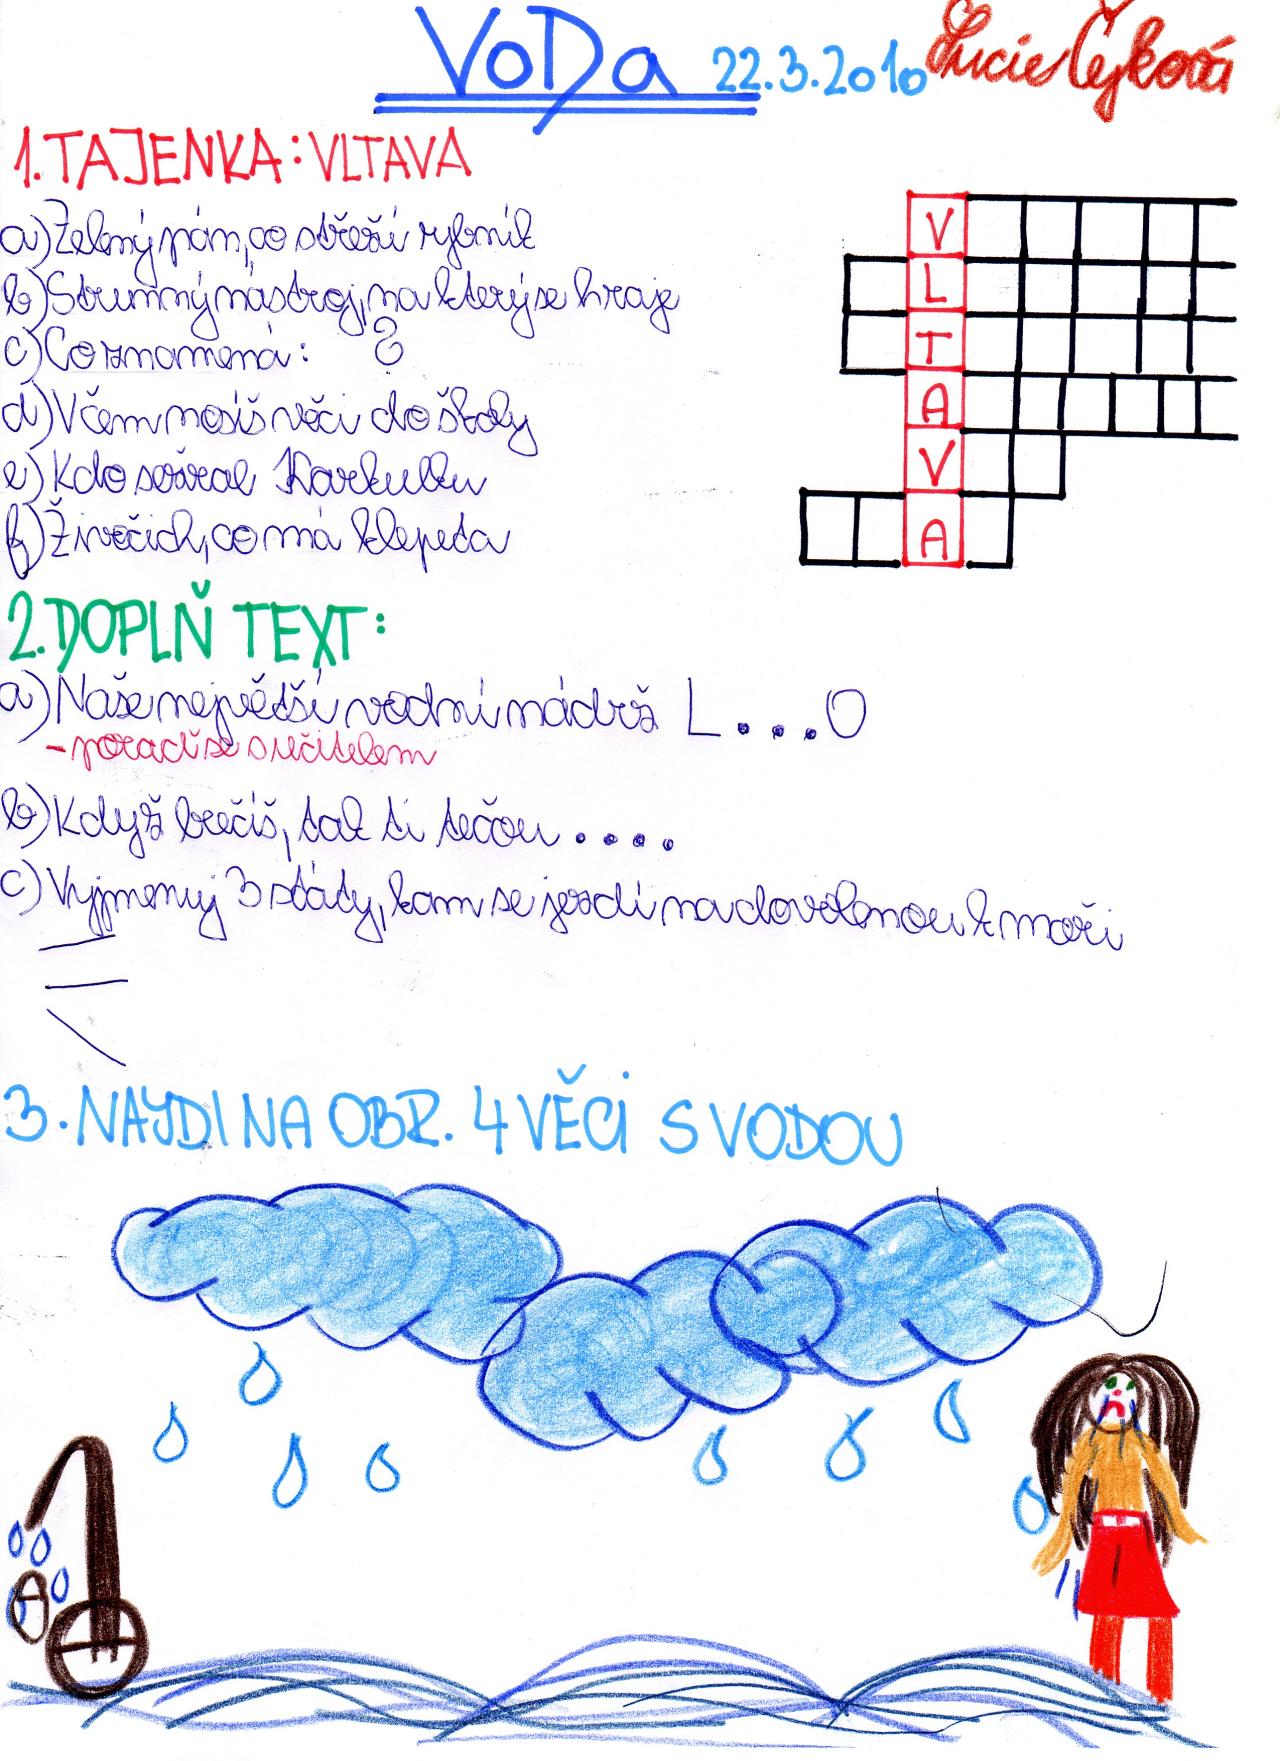 VODa 22.3.2010 Lucie Čejková
1. TAJENKA: VLTAVA
a) Zelený pán, co střeží rybník
b) Strunný nástroj, na který se hraje
c) Co znamená: ?
d) V čem nosíš věci do školy
e) Kdo sežral Karkulku
f) Živočich, co má klepeta
V
L
T
A
V
A
2. DOPLŇ TEXT:
a) Naše největší vodní nádrž L....O
- poraď se s učitelem
b) Když brečíš, tak ti tečou ....
c) Vyjmenuj 3 státy, kam se jezdí na dovolenou k moři
3. NAJDI NA OBR. 4 VĚCI S VODOU